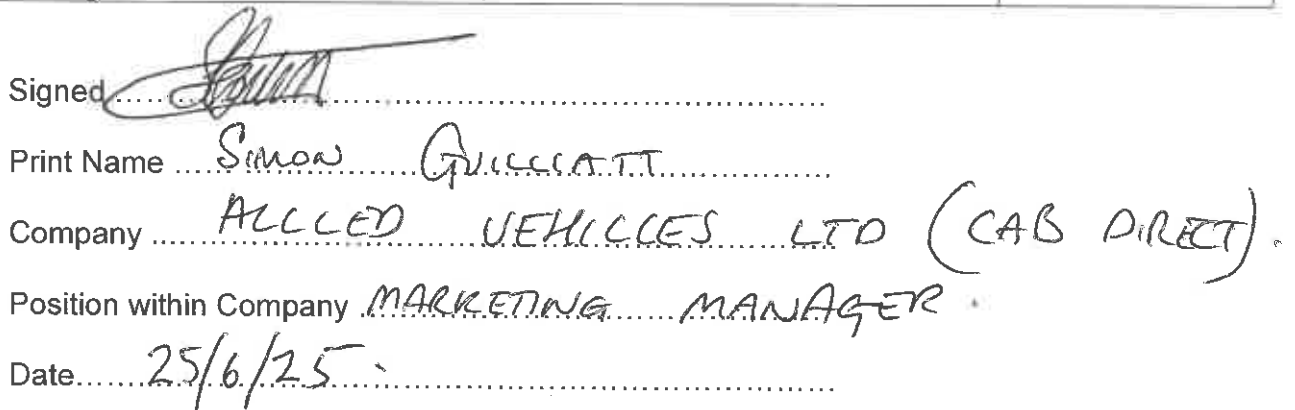 Signed
Print Name Simon Guilliatt
Company ALLIED VEHICLES LTD (CAB DIRECT).
Position within Company MARKETING MANAGER.
Date 25/6/25.